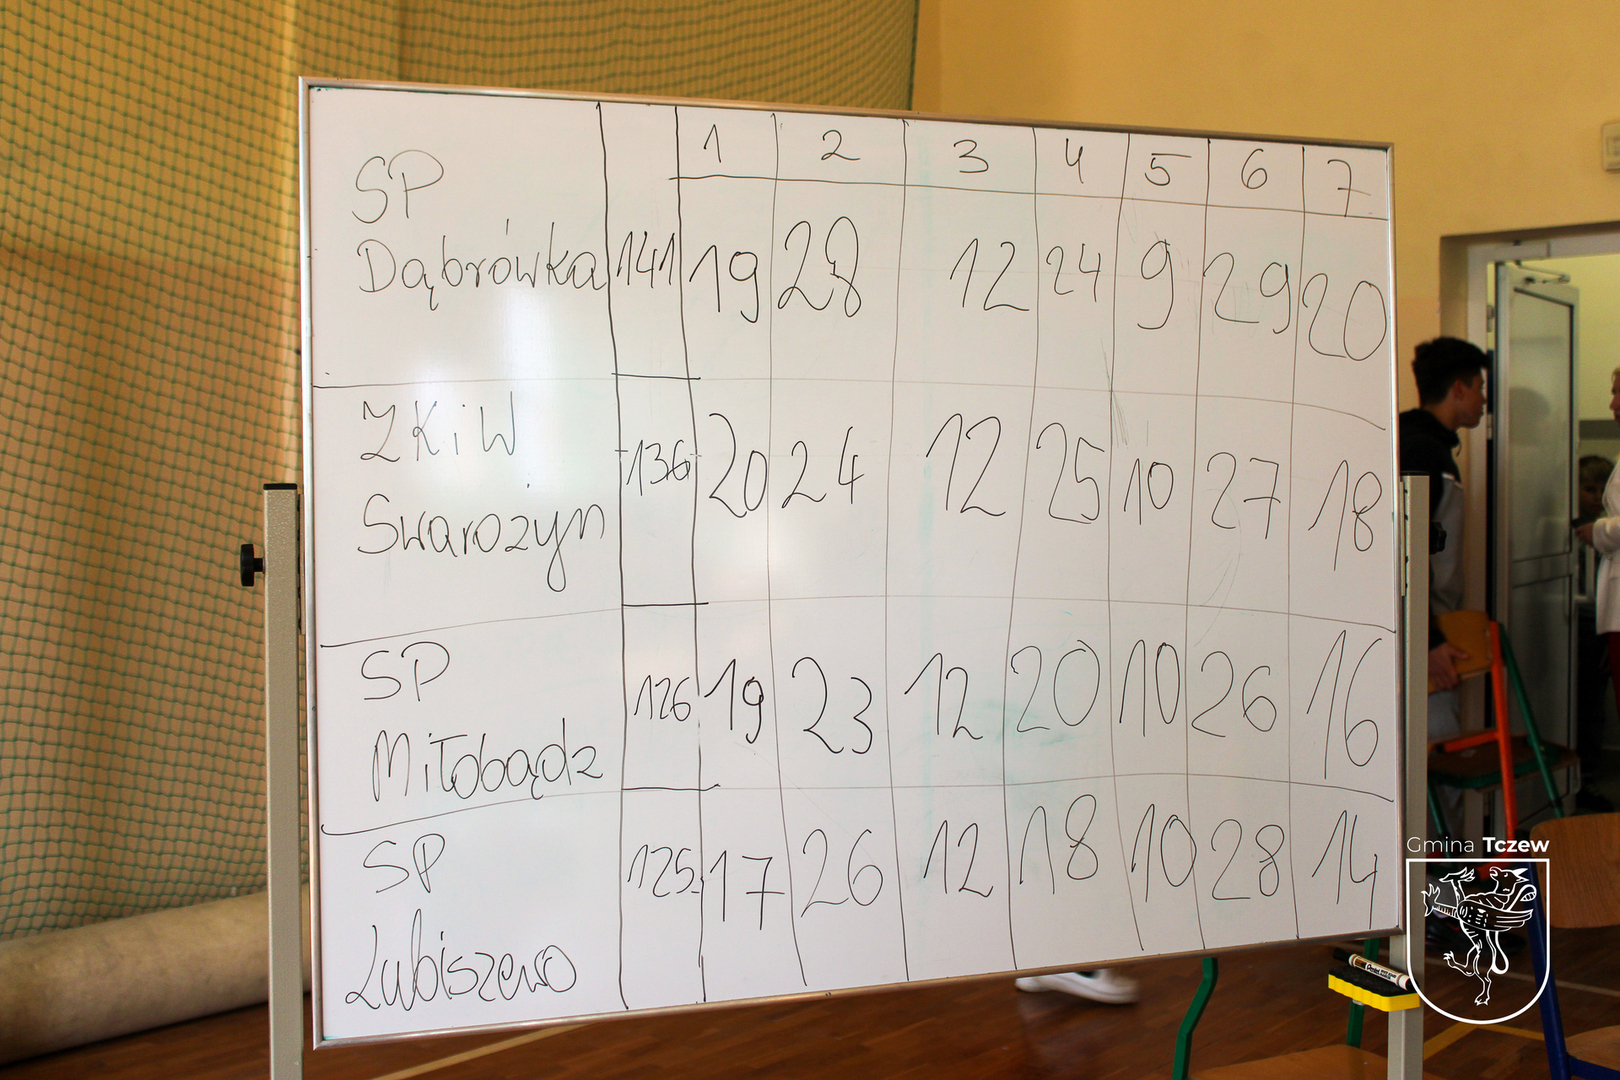 1 2 3 4 5 6 7
SP
Dąbrówka 141 19 28 12 24 9 29 20
ZKiW
Swarożyn 136 20 24 12 25 10 27 18
SP
Miłobądz 126 19 23 12 20 10 26 16
SP
Lubiszewo 125 17 26 12 18 10 28 14
Gmina Tczew